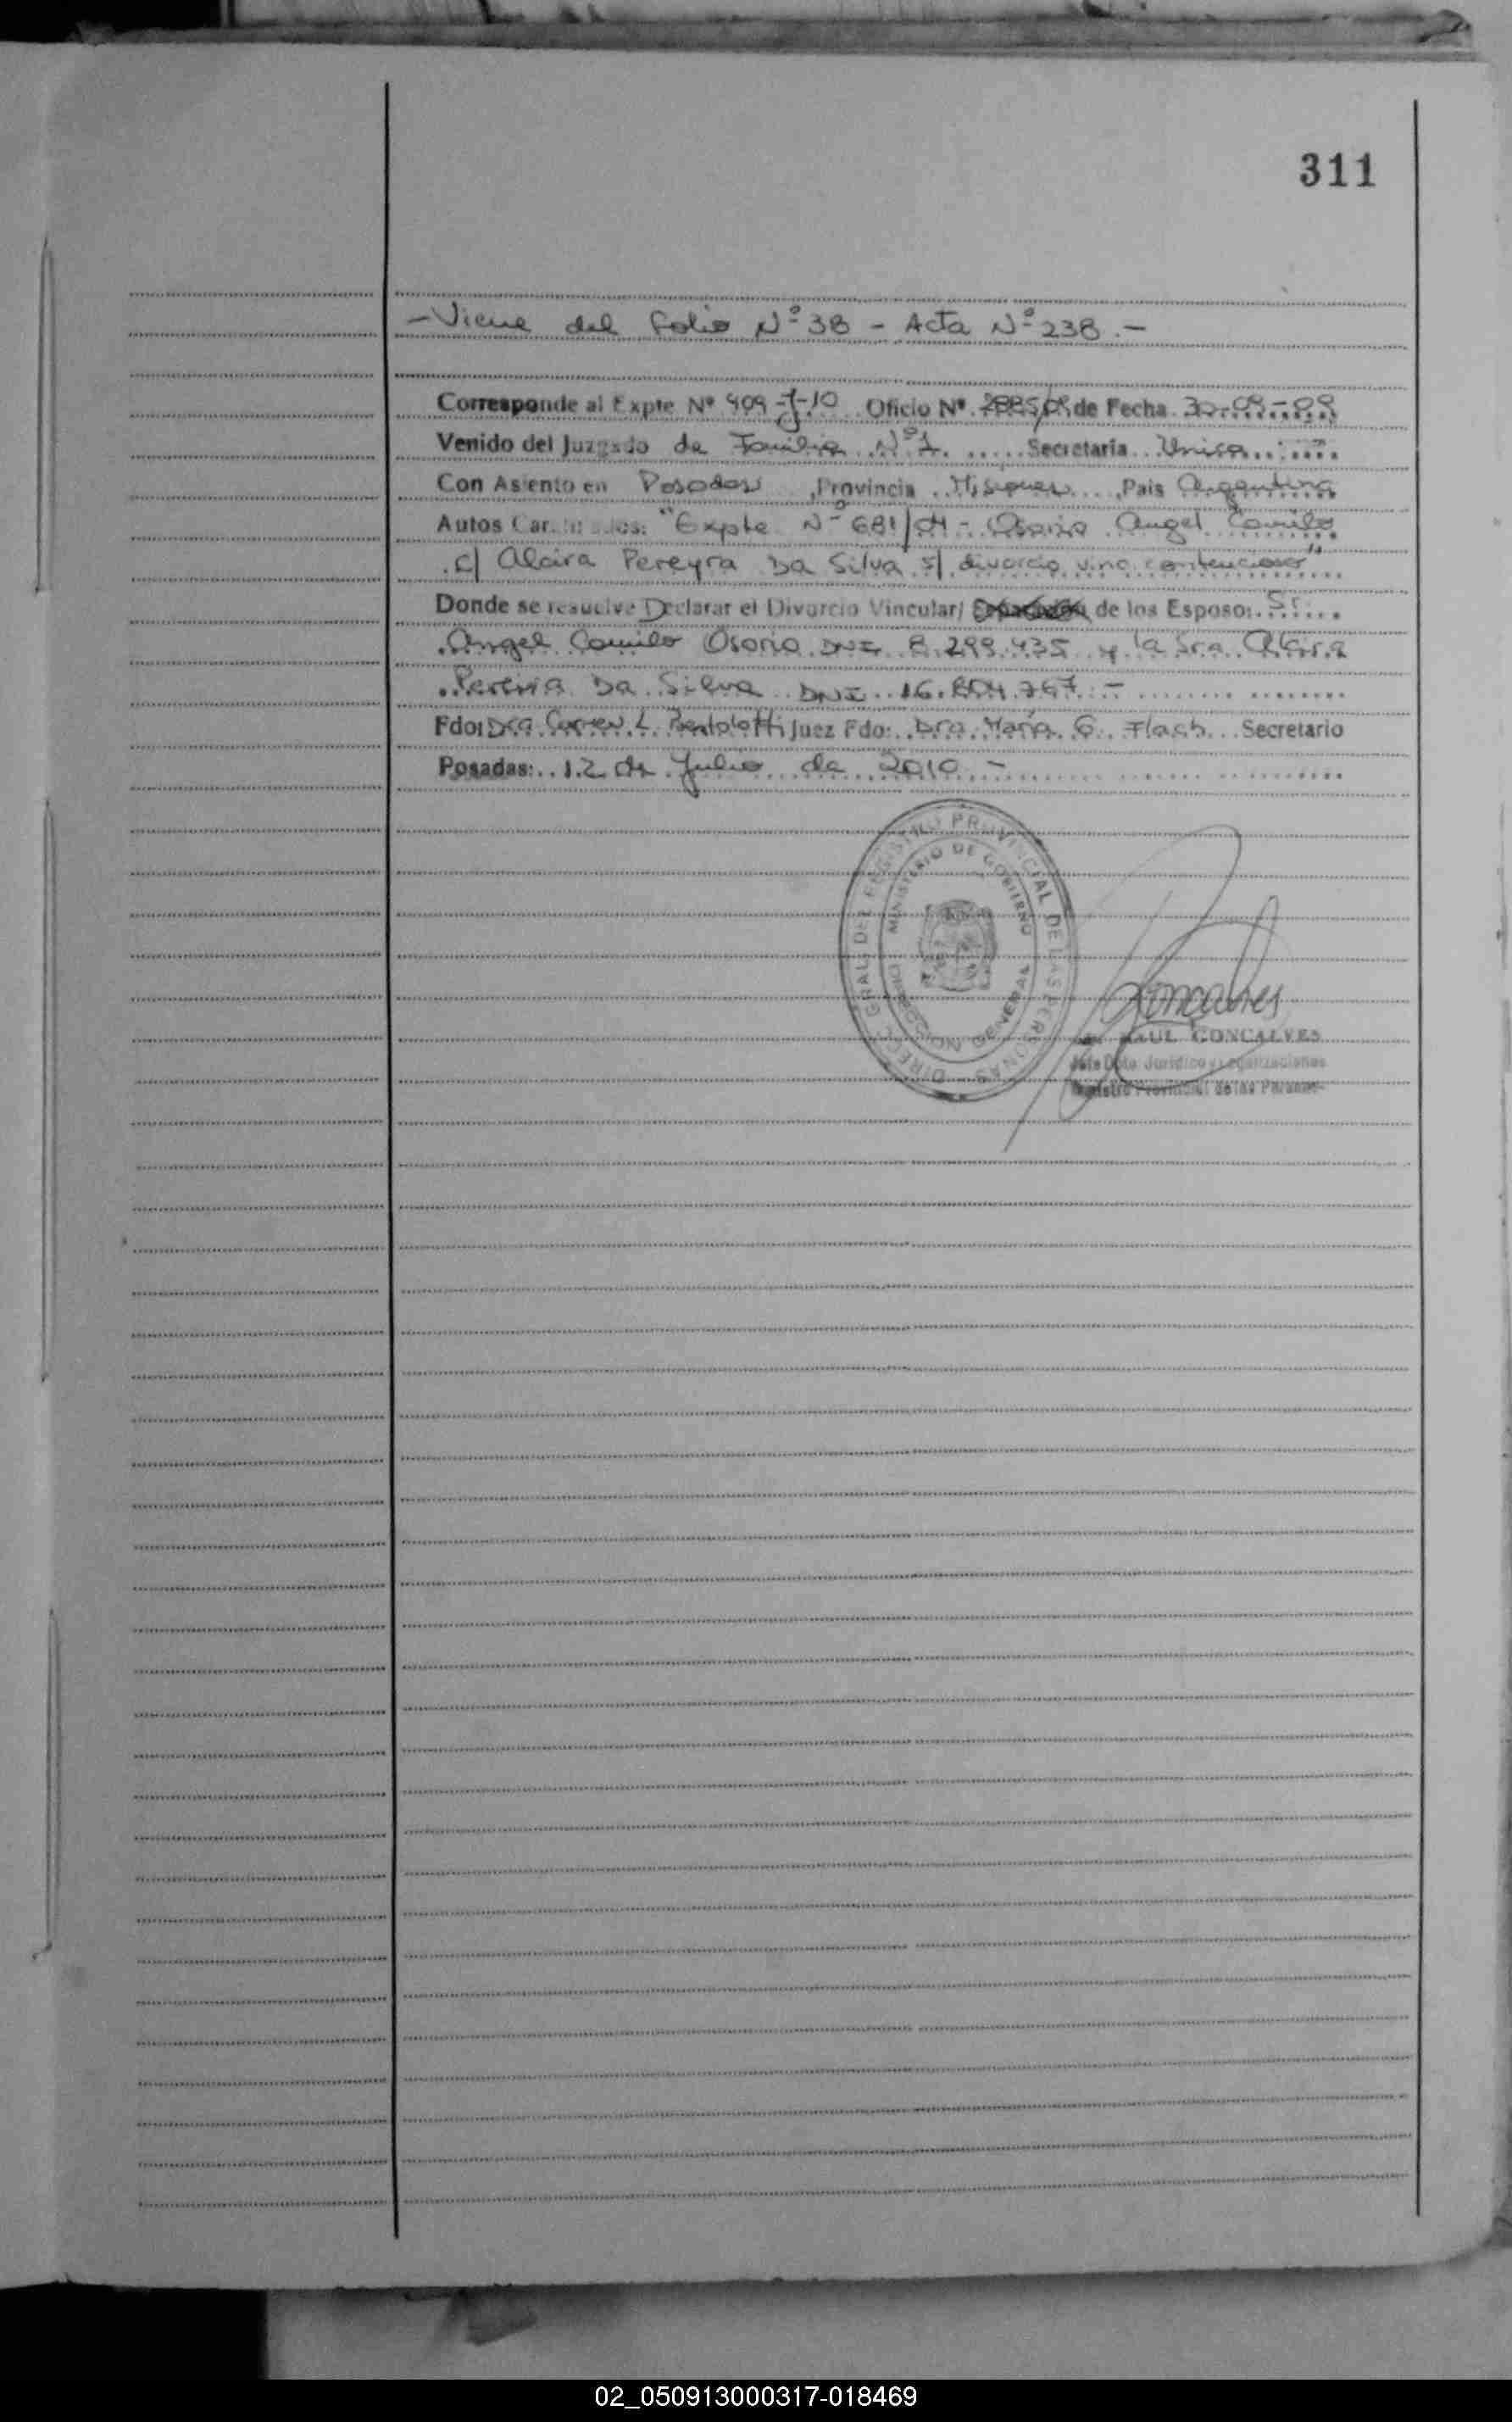 311
-Viene del folio Nº 38 - Acta Nº 238.-
Corresponde al Expte Nº 409-J-10 Oficio Nº 2885/09 de Fecha 30-09-09
Venido del Juzgado de Familia Nº 1. Secretaria Unica
Con Asiento en Posadas, Provincia Misiones, Pais Argentina
Autos Caratulados: "Expte Nº 681/04 - Osorio Angel Camilo
c/ Alcira Pereyra Da Silva s/ divorcio vinc. contencioso"
Donde se resuelve Declarar el Divorcio Vincular/ de los Esposo: Sr.
Angel Camilo Osorio DNI 8.299.435 y la Sra. Alcira
Pereira Da Silva DNI 16.804.767.-
Fdo: Dra Carmen L. Bertolotti Juez Fdo: Dra. María G. Flach Secretario
Posadas: 12 de Julio de 2010.-
DIRECC. GRAL. DEL REGISTRO PROVINCIAL DE LAS PERSONAS
MINISTERIO DE GOBIERNO
DIRECCION GENERAL
Goncalves
RAUL GONCALVES
Jefe Dpto. Jurídico y Legalizaciones
Registro Provincial de las Personas
02_050913000317-018469